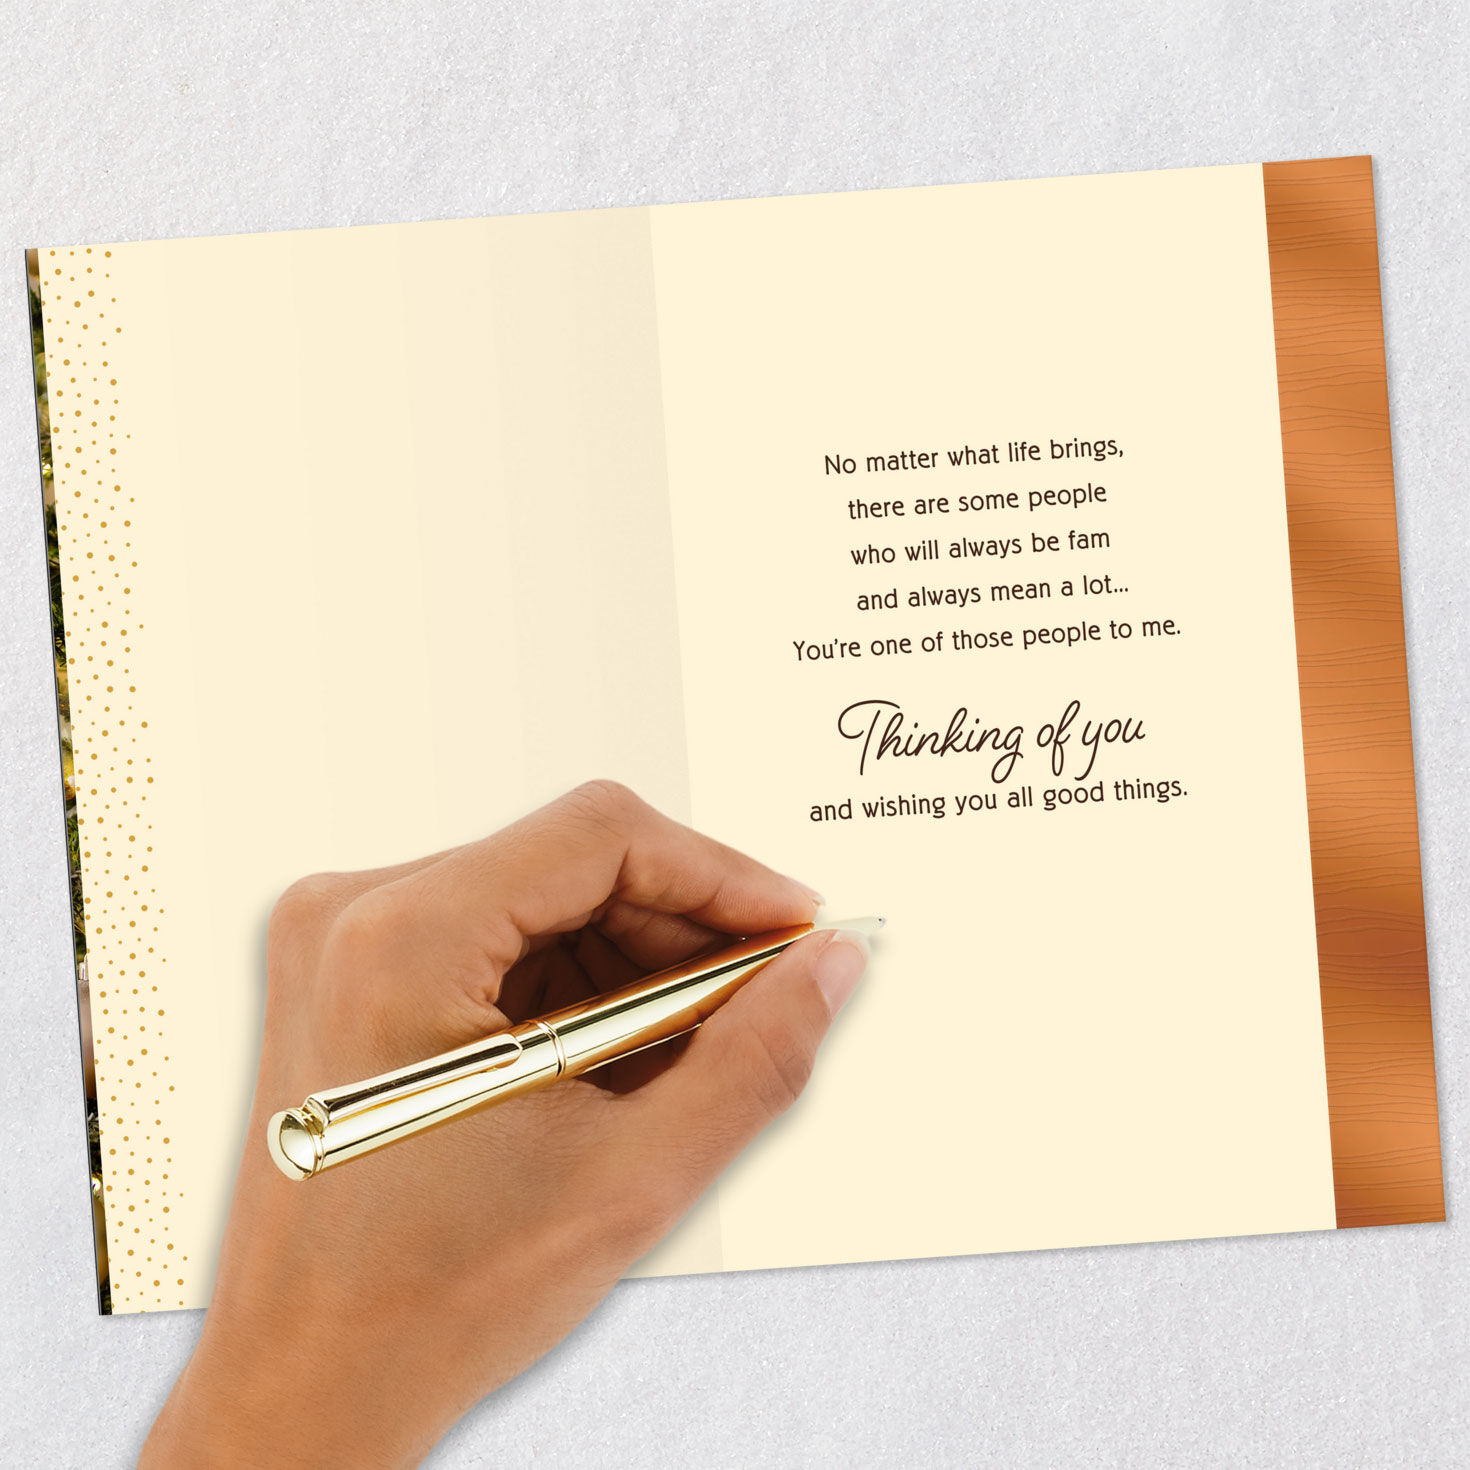 No matter what life brings,
there are some people
who will always be fam
and always mean a lot...
You're one of those people to me.
Thinking of you
and wishing you all good things.